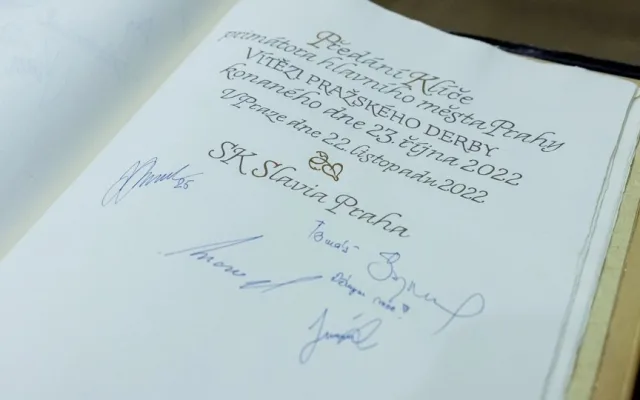 Předání Klíče
primátora hlavního města Prahy
VÍTĚZI PRAŽSKÉHO DERBY
konaného dne 23. října 2022
V Praze dne 22. listopadu 2022
SK Slavia Praha
26
Tomáš